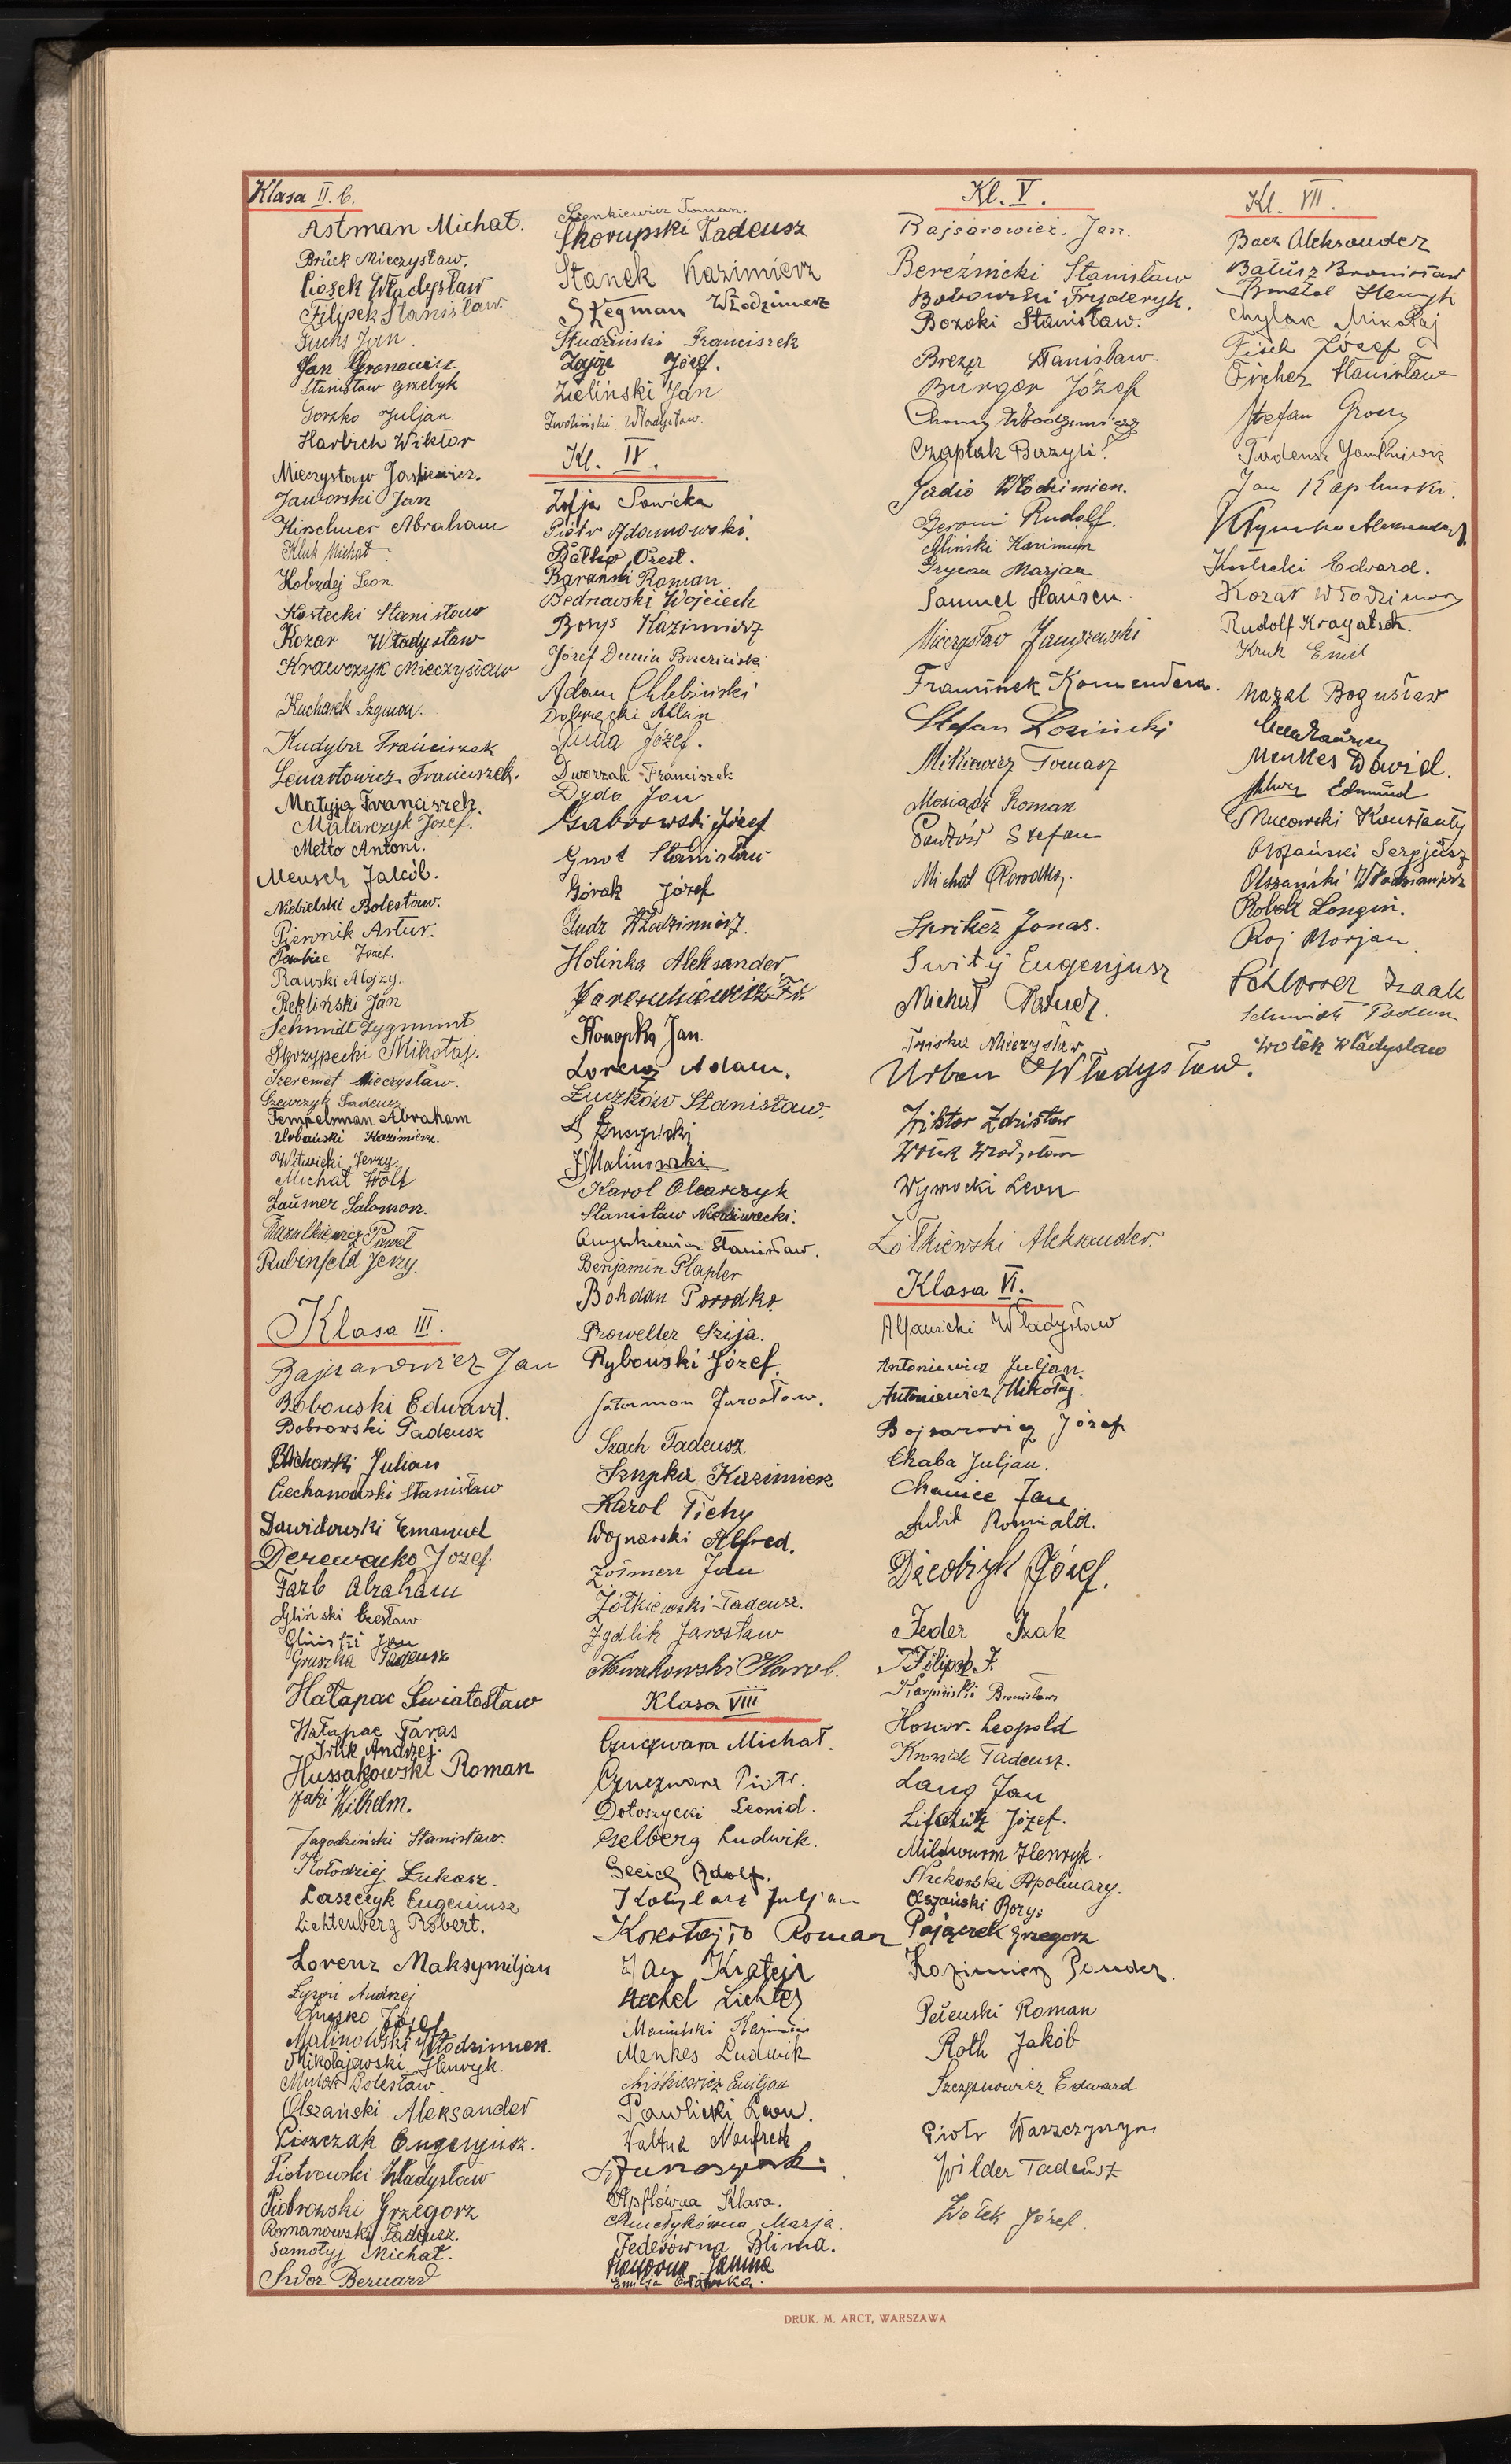 Klasa II. b.
Astman Michał.
Brück Mieczysław.
Ciosek Władysław
Filipek Stanisław.
Fuchs Jan.
Jan Gronowicz.
Stanisław Grzebyk
Gorzko Juljan.
Harbich Wiktor
Mieczysław Jaskiewicz.
Jaworski Jan
Kirschner Abraham
Kluk Michał
Kobzdej Leon
Kostecki Stanisław
Kozar Władysław
Krawczyk Mieczysław
Kucharek Szymon.
Kudyba Franciszek
Lenartowicz Franciszek.
Matyja Franciszek.
Malarczyk Józef.
Metto Antoni.
Mensch Jakób.
Niebielski Bolesław.
Piernik Artur.
Józef.
Rawski Alojzy.
Rekliński Jan
Schmidt Zygmunt
Skrzypecki Mikołaj.
Szeremet Mieczysław.
Szewczyk Tadeusz
Tempelman Abraham
Urbański Kazimierz.
Witwicki Jerzy.
Michał Wolf
Zausner Salomon.
Paweł
Rubinfeld Jerzy.
Klasa III.
Bajsarowicz Jan
Bobowski Edward.
Bobrowski Tadeusz
Blicharski Julian
Ciechanowski Stanisław
Dawidowski Emanuel
Derewenko Józef.
Farb Abraham
Gliński Czesław
Gliński Jan
Gruszka Tadeusz
Hałapac Światosław
Hałapac Taras
Irlik Andrzej.
Hussakowski Roman
Jaki Wilhelm.
Jagodziński Stanisław.
Kołodziej Łukasz.
Łaszczyk Eugeniusz
Lichtenberg Robert.
Lorenz Maksymiljan
Andrzej
Józef
Malinowski Włodzimierz.
Mikołajewski Henryk.
Bolesław.
Olszański Aleksander
Piszczak Eugenjusz.
Piotrowski Władysław
Piotrowski Grzegorz
Romanowski Tadeusz.
Samotyj Michał.
Sidor Bernard
Sienkiewicz Roman.
Skorupski Tadeusz
Stanek Kazimierz
Stegman Włodzimierz
Studziński Franciszek
Zając Józef.
Zieliński Jan
Zwoliński. Władysław.
Kl. IV.
Zofja Sawicka
Piotr Adamowski.
Baltro Orest.
Barański Roman
Bednarski Wojciech
Borys Kazimierz
Józef Dunin Brzeziński
Adam Chlebiński
Dobrzęcki Allan
Duda Józef.
Dworzak Franciszek
Dyda Jan
Gabrowski Józef
Gnot Stanisław
Górak Józef
Gudz Włodzimierz.
Holinka Aleksander
Konopka Jan.
Lorenz Adam.
Łuczków Stanisław.
J Malinowski
Karol Olearczyk
Stanisław
Stanisław.
Benjamin Plapler
Bohdan Porodko.
Proweller Szija.
Rybowski Józef.
Jarosław.
Szach Tadeusz
Szupka Kazimierz
Karol Tichy
Wojnarski Alfred.
Jan
Żółkiewski Tadeusz.
Zgdlik Jarosław
Nowakowski Karol.
Klasa VIII
Czuczwara Michał.
Czuczwara Piotr.
Dołoszycki Leonid.
Eselberg Ludwik.
Adolf.
Kobylarz Juljan
Roman
Jan
Hechel Lichter
Kazimierz
Menkes Ludwik
Miśkiewicz Emiljan
Pawlicki Leon.
Manfred
Apflówna Klara.
Chmetykówna Marja.
Federówna Blima.
Janina
Emilja
Kl. V.
Bajsarowicz. Jan.
Bereźnicki Stanisław
Bobowski Fryderyk.
Bozoki Stanisław.
Brezer Stanisław.
Bürger Józef
Czaplak Bazyli.
Gadio Włodzimierz.
Geroni Rudolf.
Gliński Kazimierz
Grycan Marjan
Samuel Hausen.
Mieczysław Januszewski
Franciszek Komendera.
Stefan Łosiński
Mikiewicz Tomasz
Mosiądz Roman
Pawłów Stefan
Michał Porodko.
Spritzer Jonas.
Switÿ Eugenjusz
Michał
Mieczysław
Urban Władysław.
Wiktor Zdzisław
Władysław
Wysocki Leon
Żółkiewski Aleksander.
Klasa VI.
Władysław
Antoniewicz Juljan.
Antoniewicz Mikołaj.
Bajsarowicz Józef
Chaba Juljan.
Jan
Romuald.
Józef.
Feder Izak
Filipek J.
Karpiński Bronisław
Leopold
Tadeusz.
Lang Jan
Lifschütz Józef.
Mildwurm Henryk.
Apolinary.
Olszański Borys
Pajączek Grzegorz
Kazimierz
Petenski Roman
Roth Jakób
Edward
Piotr Waszczyszyn
Wilder Tadeusz
Wołek Józef.
Kl. VII.
Bacz Aleksander
Bałusz Bronisław
Henryk
Chylak Mikołaj
Józef
Fischer Stanisław
Stefan Grossy
Tadeusz
Jan Kapłuński.
Klymko Aleksander
Kostecki Edward.
Kozar Włodzimierz
Rudolf Krogatsch.
Kruk Emil
Mazal Bogusław
Menkes Dawid.
Edmund
Konstanty
Olszański Sergjusz
Olszański Włodzimierz
Robak Longin.
Roj Marjan.
Schlosser Izaak
Schmidt
Wołek Władysław
DRUK. M. ARCT, WARSZAWA